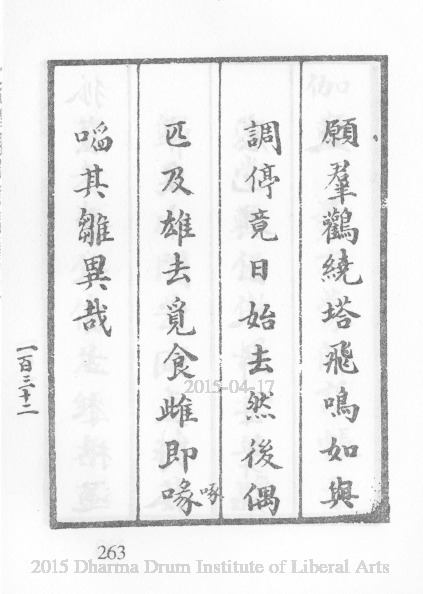 願羣鸛繞塔飛鳴如與
調停竟日始去然後偶
匹及雄去覓食雌即喙
啄
啗其雛異哉
一百三十二
2015-04-17
263
2015 Dharma Drum Institute of Liberal Arts